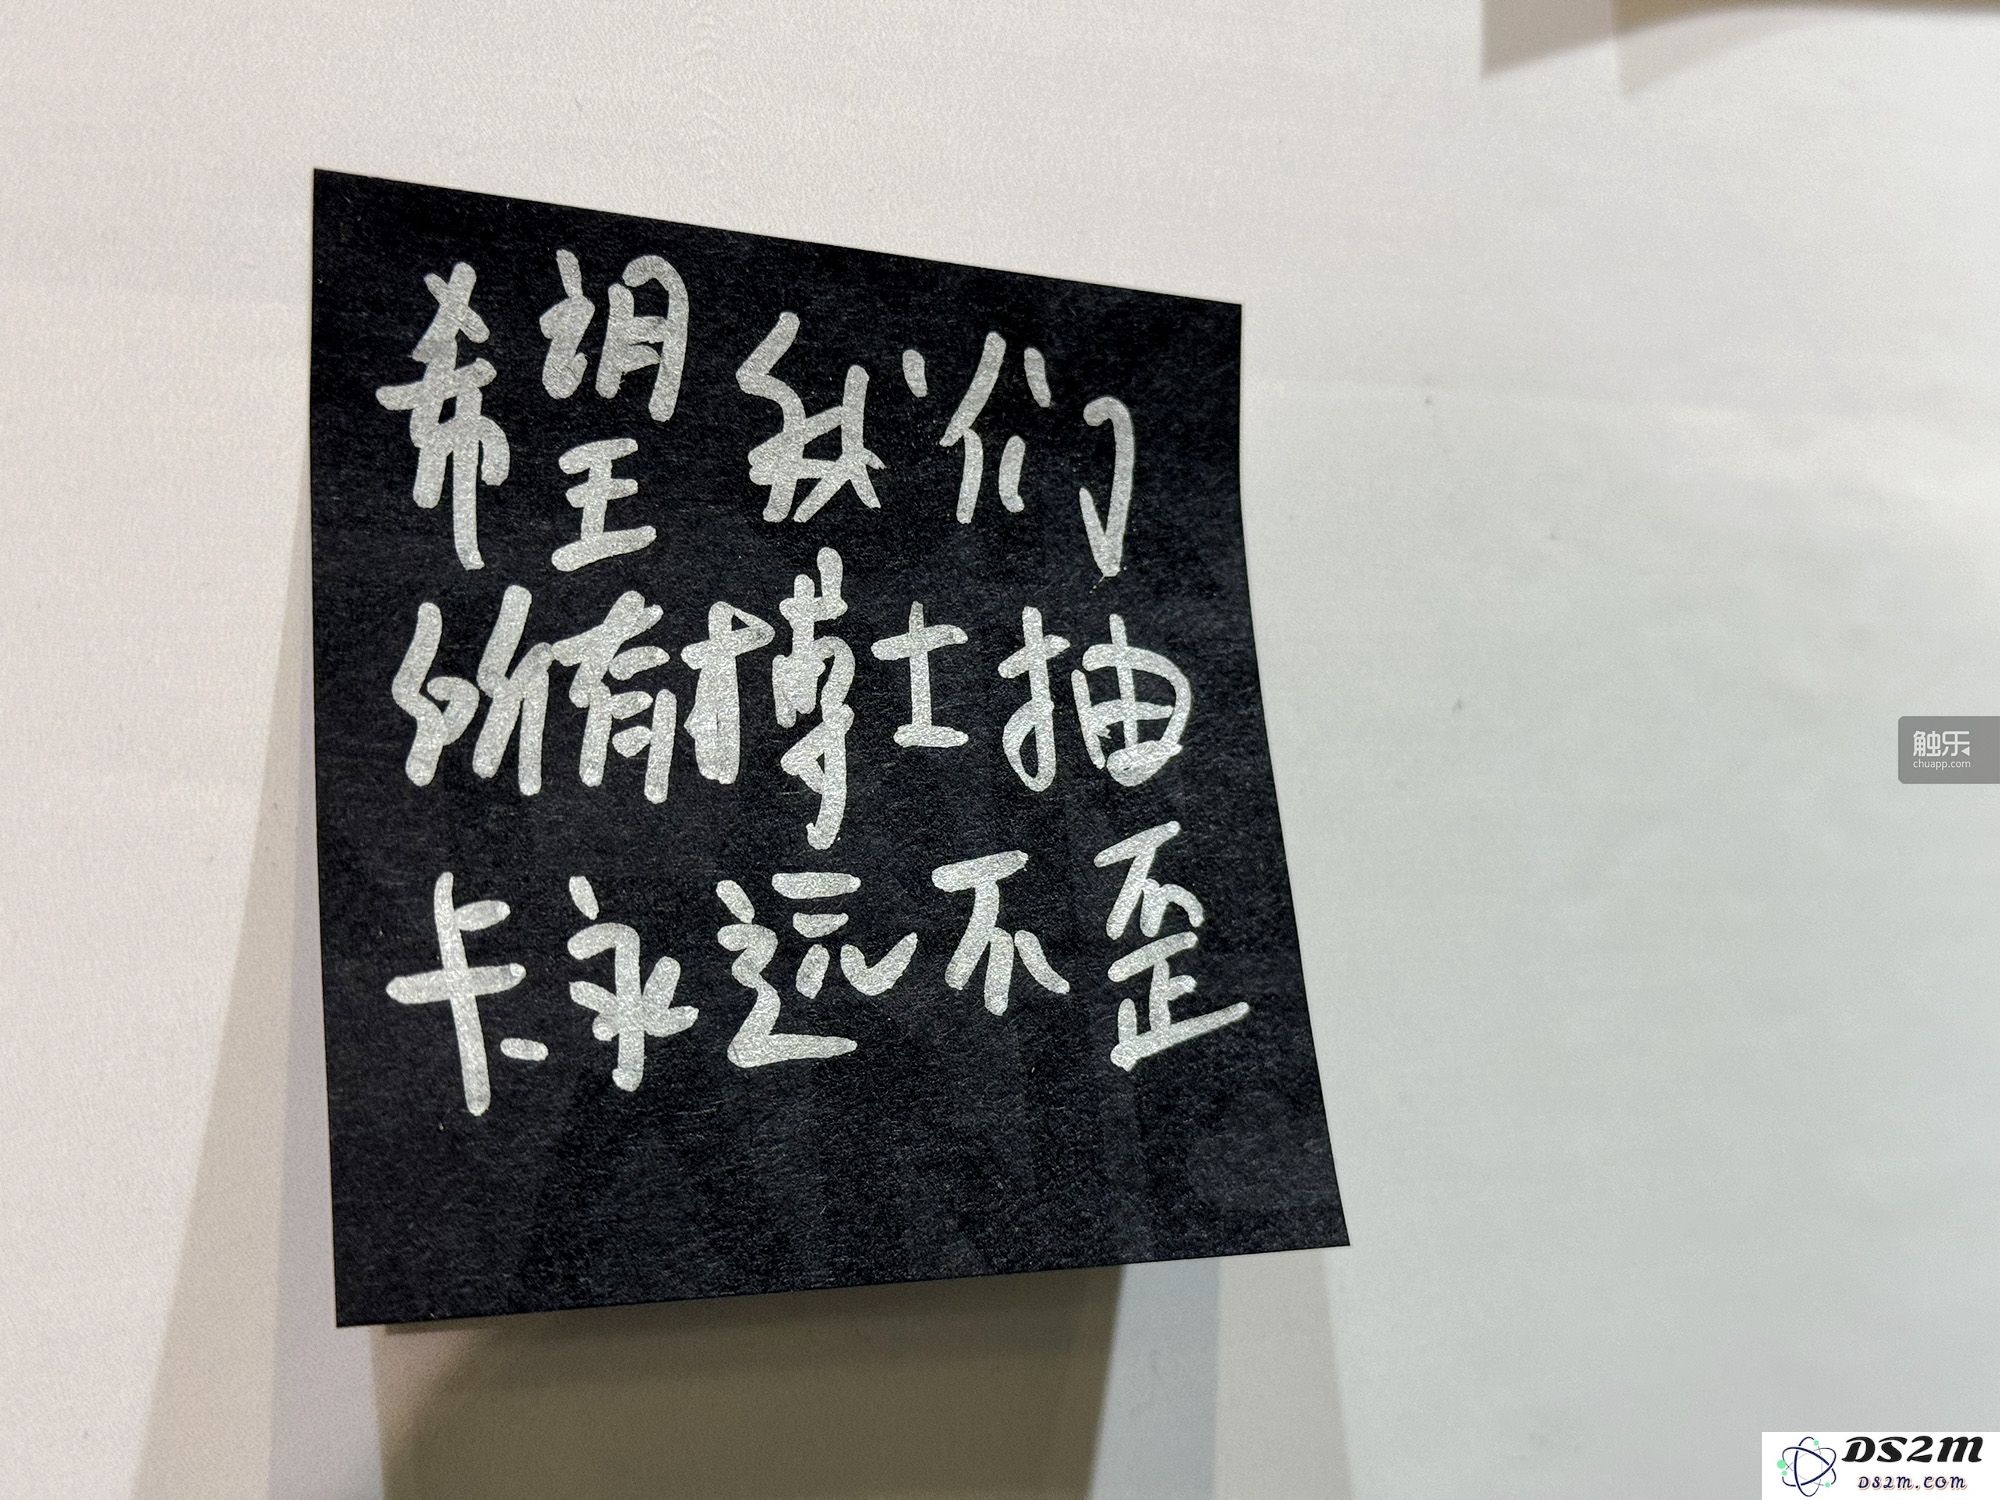 希望我们
所有博士抽
卡永远不歪
触乐
chuapp.com
DS2M
DS2M.com